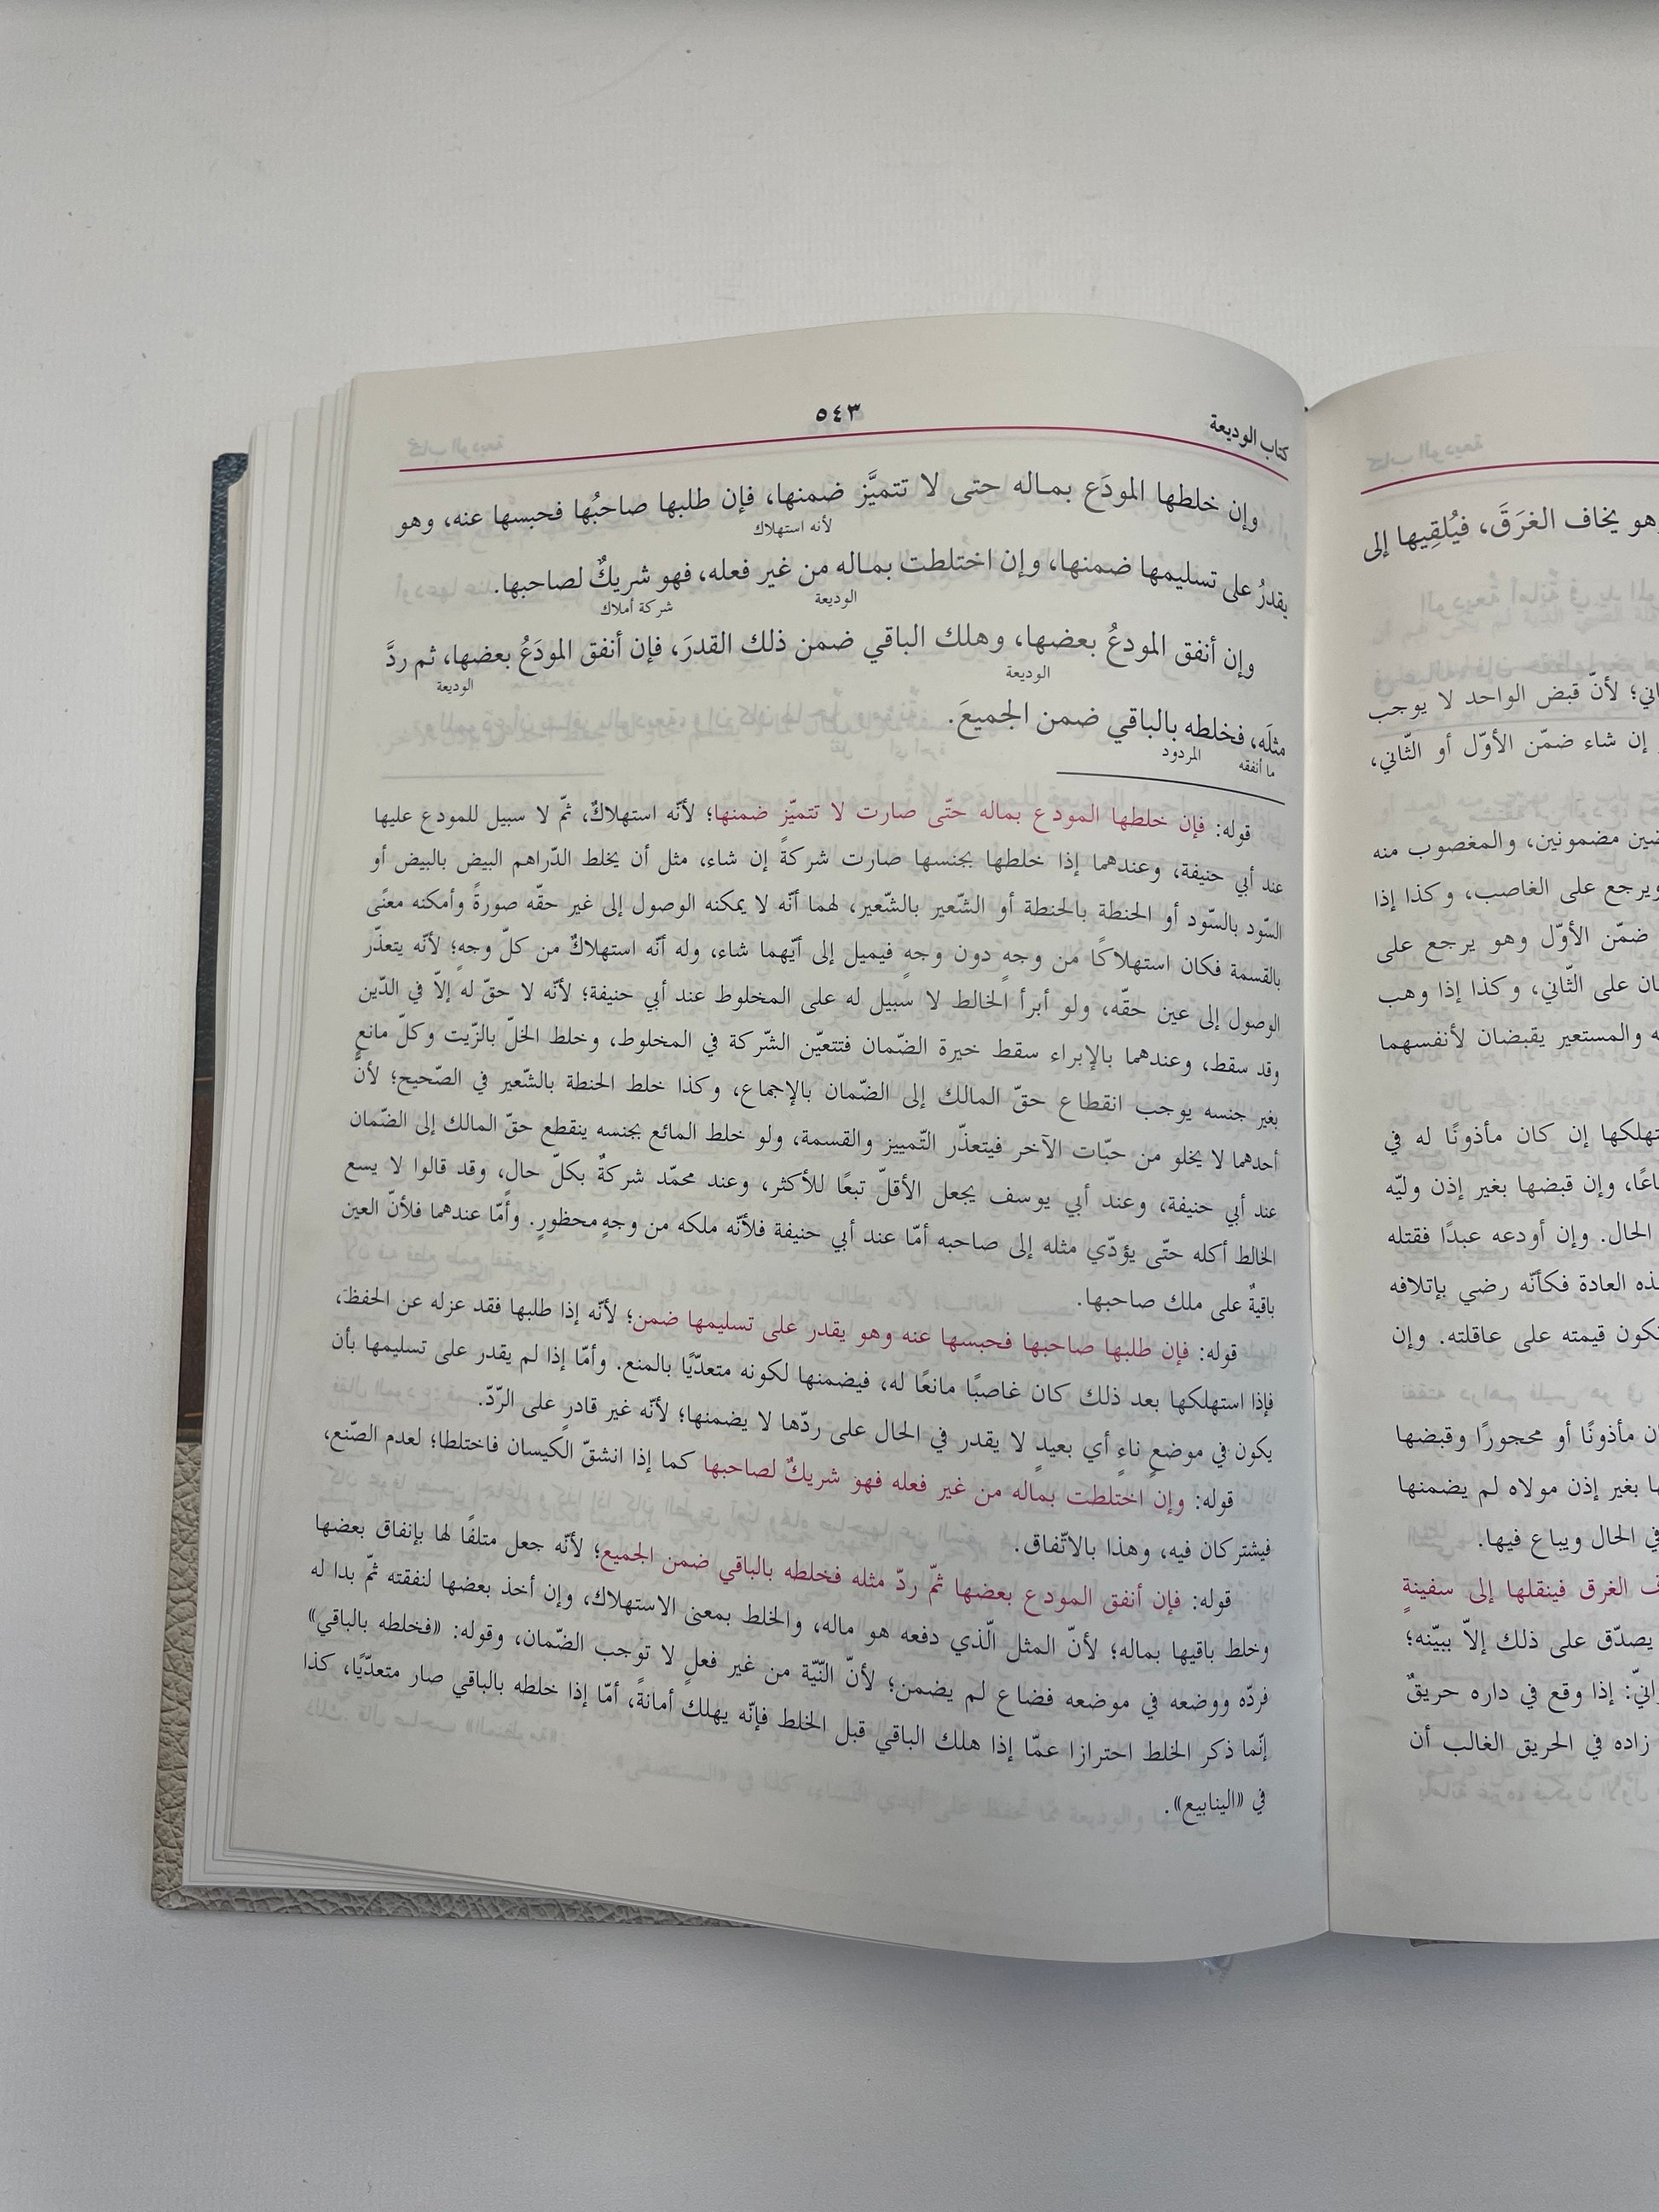 كتاب الوديعة
٥٤٣
وإن خلطها المودَع بمـاله حتى لا تتميَّز ضمنها، فإن طلبها صاحبُها فحبسها عنه، وهو
لأنه استهلاك
يقدرُ على تسليمها ضمنها، وإن اختلطت بمـاله من غير فعله، فهو شريكٌ لصاحبها.
الوديعة
شركة أملاك
وإن أنفق المودعُ بعضها، وهلك الباقي ضمن ذلك القدرَ، فإن أنفق المودَعُ بعضها، ثم ردَّ
الوديعة
الوديعة
مثلَه، فخلطه بالباقي ضمن الجميعَ.
ما أنفقه
المردود
قوله: فإن خلطها المودع بماله حتّى صارت لا تتميّز ضمنها؛ لأنّه استهلاكٌ، ثمّ لا سبيل للمودع عليها
عند أبي حنيفة، وعندهما إذا خلطها بجنسها صارت شركةً إن شاء، مثل أن يخلط الدّراهم البيض بالبيض أو
السّود بالسّود أو الحنطة بالحنطة أو الشّعير بالشّعير، لهما أنّه لا يمكنه الوصول إلى غير حقّه صورةً وأمكنه معنًى
بالقسمة فكان استهلاكًا من وجهٍ دون وجهٍ فيميل إلى أيّهما شاء، وله أنّه استهلاكٌ من كلّ وجهٍ؛ لأنّه يتعذّر
الوصول إلى عين حقّه، ولو أبرأ الخالط لا سبيل له على المخلوط عند أبي حنيفة؛ لأنّه لا حقّ له إلّا في الدّين
وقد سقط، وعندهما بالإبراء سقط خيرة الضّمان فتتعيّن الشّركة في المخلوط، وخلط الخلّ بالزّيت وكلّ مانعٍ
بغير جنسه يوجب انقطاع حقّ المالك إلى الضّمان بالإجماع، وكذا خلط الحنطة بالشّعير في الصّحيح؛ لأنّ
أحدهما لا يخلو من حبّات الآخر فيتعذّر التّمييز والقسمة، ولو خلط المائع بجنسه ينقطع حقّ المالك إلى الضّمان
عند أبي حنيفة، وعند أبي يوسف يجعل الأقلّ تبعًا للأكثر، وعند محمّد شركةٌ بكلّ حال، وقد قالوا لا يسع
الخالط أكله حتّى يؤدّي مثله إلى صاحبه أمّا عند أبي حنيفة فلأنّه ملكه من وجهٍ محظورٍ. وأمّا عندهما فلأنّ العين
باقيةٌ على ملك صاحبها.
قوله: فإن طلبها صاحبها فحبسها عنه وهو يقدر على تسليمها ضمن؛ لأنّه إذا طلبها فقد عزله عن الحفظ،
فإذا استهلكها بعد ذلك كان غاصبًا مانعًا له، فيضمنها لكونه متعدّيًا بالمنع. وأمّا إذا لم يقدر على تسليمها بأن
يكون في موضعٍ ناءٍ أي بعيدٍ لا يقدر في الحال على ردّها لا يضمنها؛ لأنّه غير قادرٍ على الرّدّ.
قوله: وإن اختلطت بماله من غير فعله فهو شريكٌ لصاحبها كما إذا انشقّ الكيسان فاختلطا؛ لعدم الصّنع،
فيشتركان فيه، وهذا بالاتّفاق.
قوله: فإن أنفق المودع بعضها ثمّ ردّ مثله فخلطه بالباقي ضمن الجميع؛ لأنّه جعل متلفًا لها بإنفاق بعضها
وخلط باقيها بماله؛ لأنّ المثل الّذي دفعه هو ماله، والخلط بمعنى الاستهلاك، وإن أخذ بعضها لنفقته ثمّ بدا له
فردّه ووضعه في موضعه فضاع لم يضمن؛ لأنّ النّيّة من غير فعلٍ لا توجب الضّمان، وقوله: «فخلطه بالباقي»
إنّما ذكر الخلط احترازا عمّا إذا هلك الباقي قبل الخلط فإنّه يهلك أمانةً، أمّا إذا خلطه بالباقي صار متعدّيًا، كذا
في «الينابيع».
هو يخاف الغرَقَ، فيُلقِيها إلى
لأنّ قبض الواحد لا يوجب
إن شاء ضمّن الأوّل أو الثّاني،
مضمونين، والمغصوب منه
ويرجع على الغاصب، وكذا إذا
ضمّن الأوّل وهو يرجع على
على الثّاني، وكذا إذا وهب
والمستعير يقبضان لأنفسهما
إن كان مأذونًا له في
وإن قبضها بغير إذن وليّه
الحال. وإن أودعه عبدًا فقتله
العادة فكأنّه رضي بإتلافه
قيمته على عاقلته. وإن
مأذونًا أو محجورًا وقبضها
بغير إذن مولاه لم يضمنها
في الحال ويباع فيها.
الغرق فينقلها إلى سفينةٍ
يصدّق على ذلك إلّا ببيّنه؛
إذا وقع في داره حريقٌ
زاده في الحريق الغالب أن